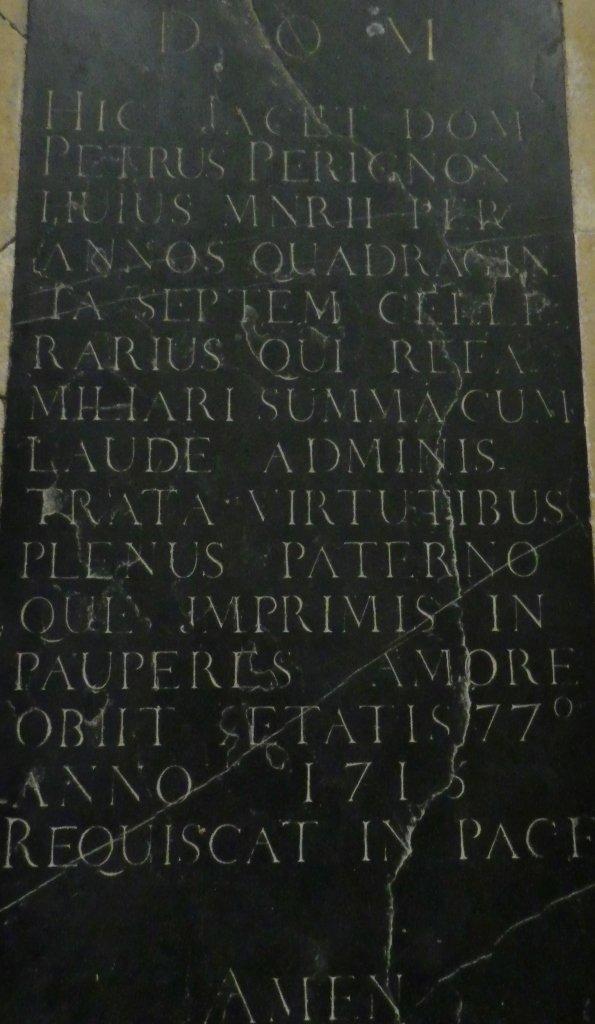 D O M
HIC JACET DOM
PETRUS PERIGNON
HUIUS MNRII PER
ANNOS QUADRAGIN
TA SEPTEM CELLE
RARIUS QUI REFA
MILIARI SUMMA CUM
LAUDE ADMINIS
TRATA VIRTUTIBUS
PLENUS PATERNO
QUE IMPRIMIS IN
PAUPERES AMORE
OBIIT ÆTATIS 77°
ANNO 1715
REQUISCAT IN PACE
AMEN